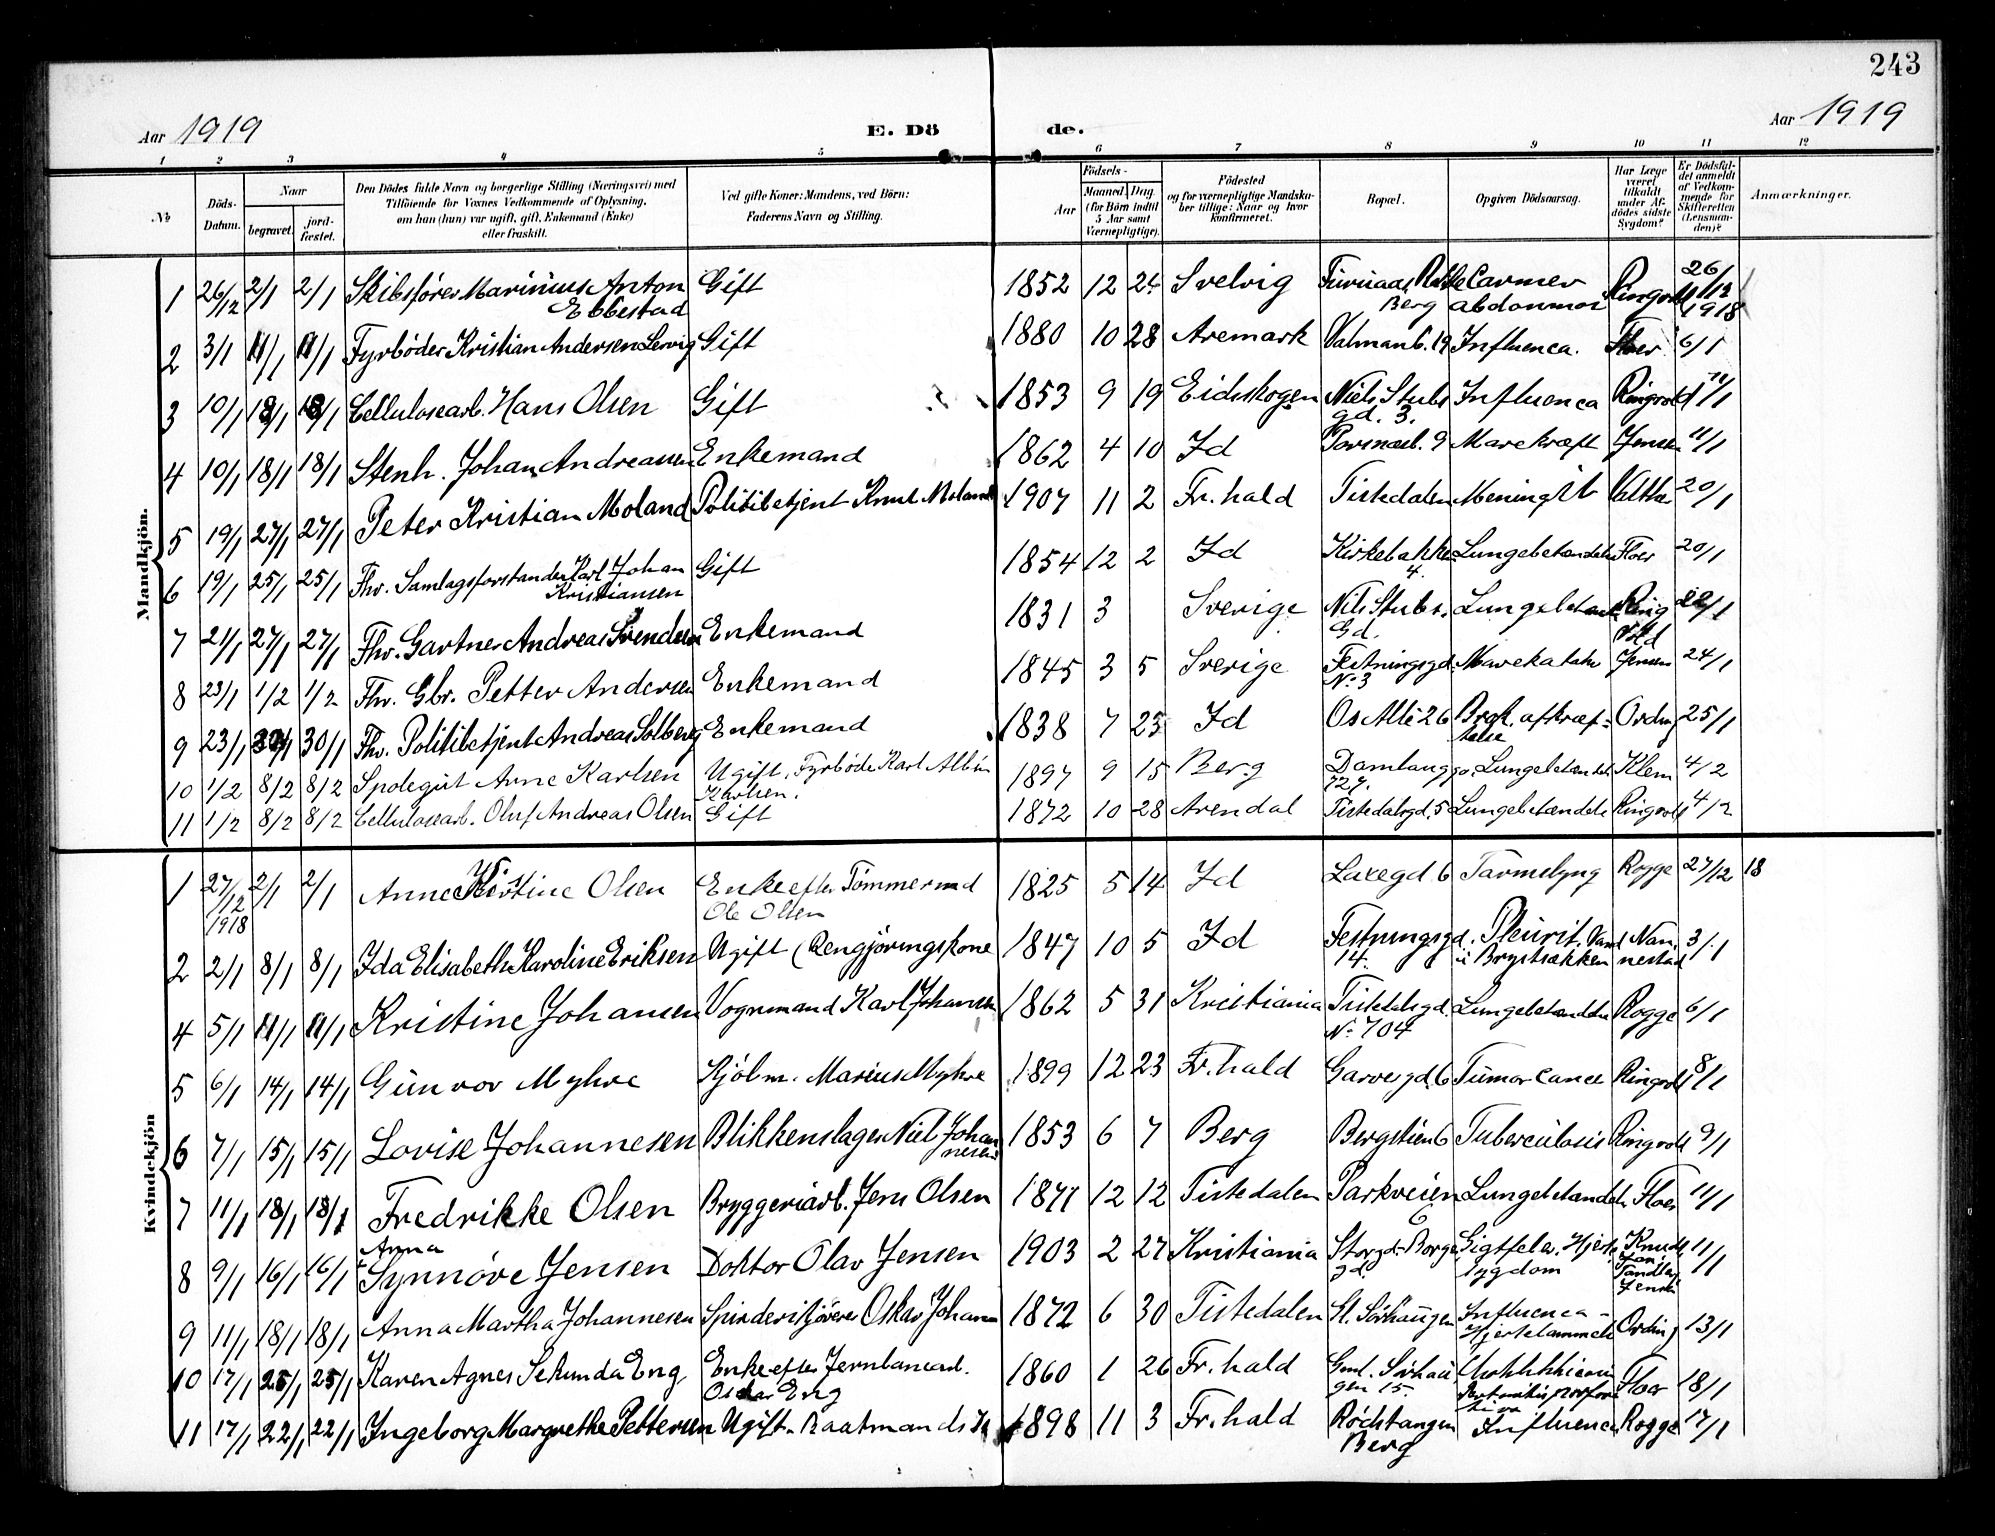 243
Aar 1919
E. Dö
de.
Aar 1919
1 2 3 4 5 6 7 8 9 10 11 12
№
Döds-
Datum.
Naar
begravet.
jord-
fæstet.
Den Dödes fulde Navn og borgerlige Stilling (Næringsvei) med
Tilföiende for Voxnes Vedkommende af Oplysning,
om han (hun) var ugift, gift, Enkemand (Enke)
eller fraskilt.
Ved gifte Koner: Mandens, ved Börn:
Faderens Navn og Stilling.
Födsels-
Aar
Maaned
Dag
(for Börn indtil
5 Aar samt
Værnepligtige).
Födested
og for værnepligtige Mandska-
ber tillige: Naar og hvor
konfirmeret.
Bopæl.
Opgiven Dödsaarsag.
Har Læge
været
tilkaldt
under Af-
dödes sidste
Sygdom?
Er Dödsfal-
det anmeldt
af Vedkom-
mende for
Skifteretten
(Lensman-
den)?
Anmærkninger.
Mandkjön.
1 26/12 2/1 2/1 Skibsfører Marinius Anton Gift 1852 12 24 Svelvig Cancer Ringvold 26/12
Ebbestad Berg 1918
2 3/1 11/1 11/1 Fyrbøder Kristian Andersen Lervig Gift 1880 10 28 Aremark Influenca. Floer 6/1
3 10/1 18/1 18/1 Cellulosearb. Hans Olsen Gift 1853 9 19 Eidskogen Niels Stubs Influenca Ringvold 11/1
gd. 3.
4 10/1 18/1 18/1 Stenh. Johan Andreassen Enkemand 1862 4 10 Id 9 Mavekræft Jensen 11/1
5 19/1 27/1 27/1 Peter Kristian Moland Politibetjent Knut Moland 1907 11 2 Fr. hald Tistedalen Meningit 20/1
6 19/1 25/1 25/1 Fhv. Samlagsforstander Karl Johan Gift 1854 12 2 Id Kirkebakken Lungebetændelse Floer 20/1
Kristiansen 4.
7 21/1 27/1 27/1 Fhv. Gartner Andreas Svendsen Enkemand 1831 3 Sverige Nils Stubs. Ring 22/1
Gd. vold
8 23/1 1/2 1/2 Fhv. Gbr. Petter Andersen Enkemand 1845 3 5 Sverige Festningsgd. Jensen 24/1
No 3
9 23/1 30/1 30/1 Fhv. Politibetjent Andreas Solberg Enkemand 1838 7 23 Id Os Allé 26 afkræf- Ording 25/1
telse
10 1/2 8/2 8/2 Spolegut Arne Karlsen Ugift. Fyrbøder Karl Albin 1897 9 15 Berg Lungebetændelse Klem 4/2
Karlsen. 727.
11 1/2 8/2 8/2 Cellulosearb. Oluf Andreas Olsen Gift 1872 10 28 Arendal Tistedalsgd. 5 Lungebetændelse Ringvold 4/2
Kvindekjön
1 27/12 2/1 2/1 Anne Kirstine Olsen Enke efter Tömmermd 1825 5 14 Id Laxegd 6 Rogge 27/12 18
1918 Ole Olsen
2 2/1 8/1 8/1 Ida Elisabeth Karoline Eriksen Ugift (Rengjöringskone 1847 10 5 Id Festningsgd. Pleurit. Vand Nan- 3/1
14. i Brystsækken nestad
4 5/1 11/1 11/1 Kristine Johansen Vognmand Karl Johansen 1862 5 31 Kristiania Tistedalsgd. Lungebetændelse Rogge 6/1
No 704
5 6/1 14/1 14/1 Gunvor Myhre Kjøbm. Marius Myhre 1899 12 23 Fr. hald Garvergd. 6 Tumor Cance Ringvold 8/1
6 7/1 15/1 15/1 Lovise Johannesen Blikkenslager Niel Johan 1853 6 7 Berg Bergstien 6 Tuberculosis Ringvold 9/1
nesen
7 11/1 18/1 18/1 Fredrikke Olsen Bryggeriarb. Jens Olsen 1871 12 12 Tistedalen Parkveien Lungebetændelse Floer 11/1
6
Anna
8 9/1 16/1 16/1 Synnöve Jensen Doktor Olav Jensen 1903 2 27 Kristiania Storgd. Borger Gigtfeber. Hjerte 11/1
gd. sygdom Jensen
9 11/1 18/1 18/1 Anna Martha Johannesen Spinderikjörer Oskar Johan 1872 6 30 Tistedalen Gl. Sörhaugen Influenca - Ording 13/1
Hjertelammelse
10 17/1 25/1 25/1 Karen Agnes Sekunda Eng Enke efter Jernbanearb. 1860 1 26 Fr. hald Gml. Sörhau Floer 18/1
Oskar Eng gen 15.
11 17/1 22/1 22/1 Ingeborg Margrethe Pettersen Ugift. Baatmands 1898 11 3 Fr. hald Rødstangen Influenca Rogge 17/1
Berg